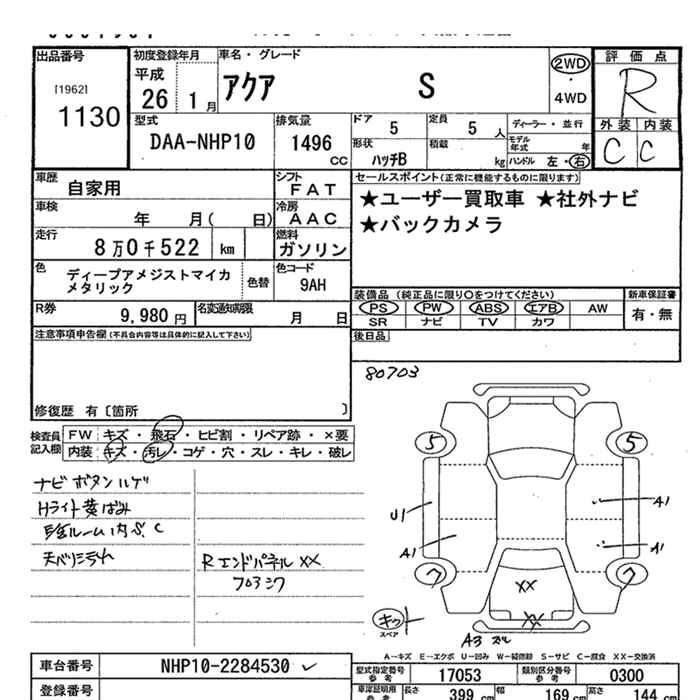 出品番号
[1962]
1130
初度登録年月
平成
26 1月
車名・グレード
アクア S
2WD
4WD
評価点
R
外装 内装
C C
型式
DAA-NHP10
排気量
1496
CC
ドア
5
定員
5人
ディーラー・並行
形状
ハッチB
積載
kg
モデル年式
年
ハンドル 左・右
車歴
自家用
シフト
FAT
車検
年 月( 日)
冷房
AAC
走行
8万0千522 km
燃料
ガソリン
色
ディープアメジストマイカ
メタリック
色替
色コード
9AH
R券
9,980円
名変通知期限
月 日
セールスポイント(正常に機能するものに限ります)
★ユーザー買取車 ★社外ナビ
★バックカメラ
装備品 (純正品に限り○をつけてください)
新車保証書
PS PW ABS エアB AW
有・無
SR ナビ TV カワ
後日品
注意事項申告欄(不具合内容等は具体的に記入して下さい)
修復歴 有〔箇所 〕
80703
検査員
記入欄
FW キズ・飛石・ヒビ割・リペア跡・×要
内装 キズ・汚レ・コゲ・穴・スレ・キレ・破レ
ナビ ボタン ハゲ
Hライト黄ばみ
ルーム内 S. C
天バリ
Rエンドパネル XX
フロアシワ
5 5
U1
A1
A1
A1
7 7
XX
XX
キズ
スペア
A3
A-キズ E-エクボ U-凹み W-補修跡 S-サビ C-腐食 XX-交換済
車台番号
NHP10-2284530
型式指定番号
参考
17053
類別区分番号
参考
0300
登録番号
車庫証明用
参考
長さ
399 cm
幅
169 cm
高さ
144 cm